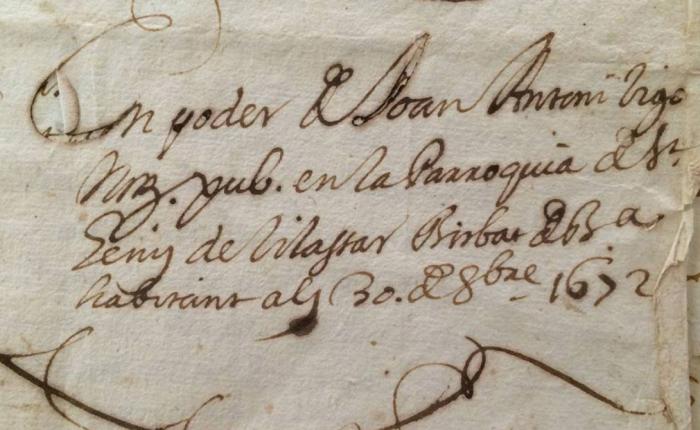 En poder de Joan Antoni Vigo
Not. pub. en la Parroquia de St.
Geniș de Vilassar Bisbat de Bar.ª
habitant als 30. de 8bre 1672